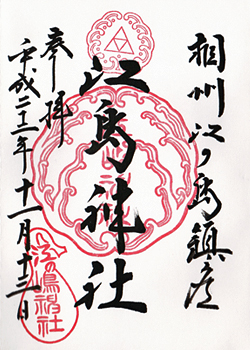 相州江ノ島鎮座
江島神社
奉拝
平成二十三年十一月十三日